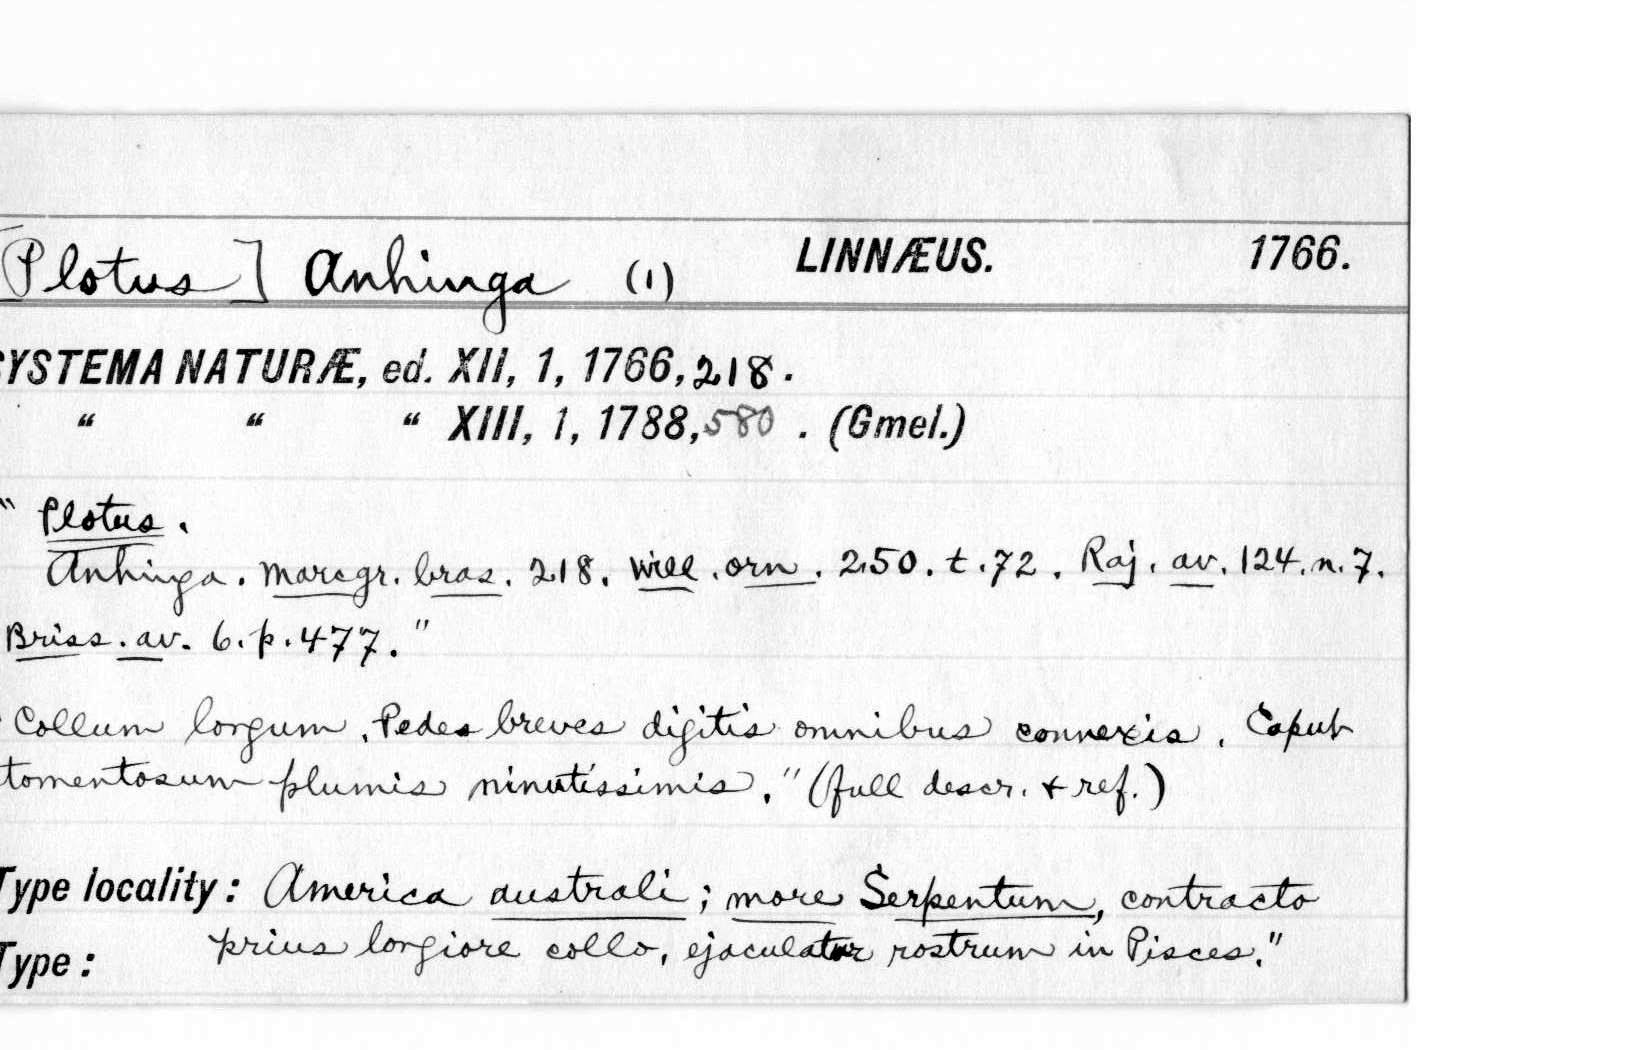 [Plotus] Anhinga (1) LINNÆUS. 1766.
SYSTEMA NATURÆ, ed. XII, 1, 1766, 218.
" " " XIII, 1, 1788, 580 . (Gmel.)
" Plotus.
Anhinga. Marcgr. bras. 218. Will. orn. 250. t. 72. Raj. av. 124. n. 7.
Briss. av. 6. p. 477."
Collum longum. Pedes breves digitis omnibus connexis. Caput
tomentosum plumis minutissimis." (full descr. & ref.)
Type locality: America australi; more Serpentum, contracto
prius longiore collo, ejaculatur rostrum in Pisces."
Type: